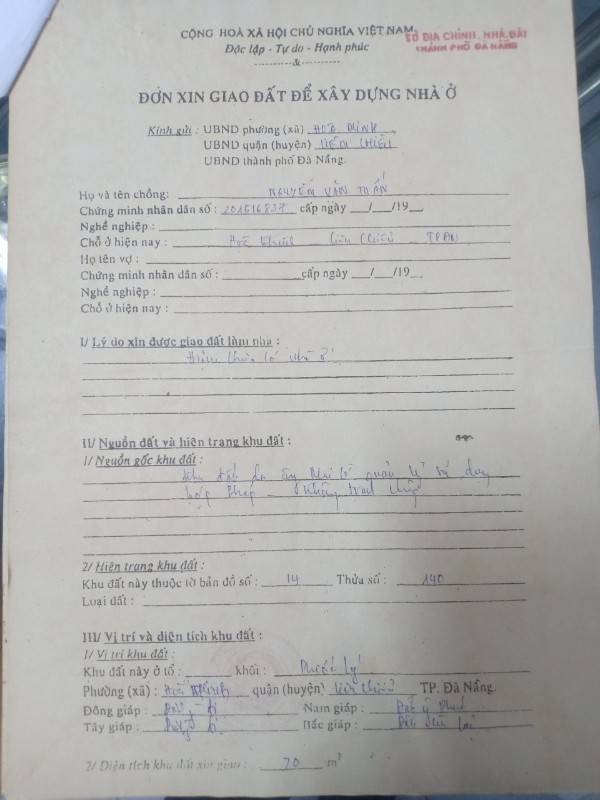 CỘNG HOÀ XÃ HỘI CHỦ NGHĨA VIỆT NAM
SỞ ĐỊA CHÍNH, NHÀ ĐẤT
THÀNH PHỐ ĐÀ NẴNG
Độc lập - Tự do - Hạnh phúc
----------&----------
ĐỚN XIN GIAO ĐẤT ĐỂ XÂY DỰNG NHÀ Ở
Kính gửi : UBND phường (xã) HOÀ MINH
UBND quận (huyện) LIÊN CHIỂU
UBND thành phố Đà Nẵng.
Họ và tên chồng: NGUYỄN VĂN TUẤN
Chứng minh nhân dân số : 201516838 cấp ngày __/__/19__
Nghề nghiệp :
Chỗ ở hiện nay : Hoà Khánh - Liên Chiểu - TPĐN
Họ tên vợ :
Chứng minh nhân dân số : cấp ngày __/__/19__
Nghề nghiệp :
Chỗ ở hiện nay :
I/ Lý do xin được giao đất làm nhà :
Hiện chưa có nhà ở
II/ Nguồn đất và hiện trạng khu đất :
1/ Nguồn gốc khu đất :
Khu đất do quản lý sử dụng
hợp pháp - không tranh chấp
2/ Hiện trạng khu đất :
Khu đất này thuộc tờ bản đồ số : 14 Thửa số : 140
Loại đất :
III/ Vị trí và diện tích khu đất :
1/ Vị trí khu đất :
Khu đất này ở tổ : khối : Phước Lý
Phường (xã) : quận (huyện) Liên Chiểu TP. Đà Nẵng.
Đông giáp : Nam giáp :
Tây giáp : Bắc giáp :
2/ Diện tích khu đất xin giao : 70 m²